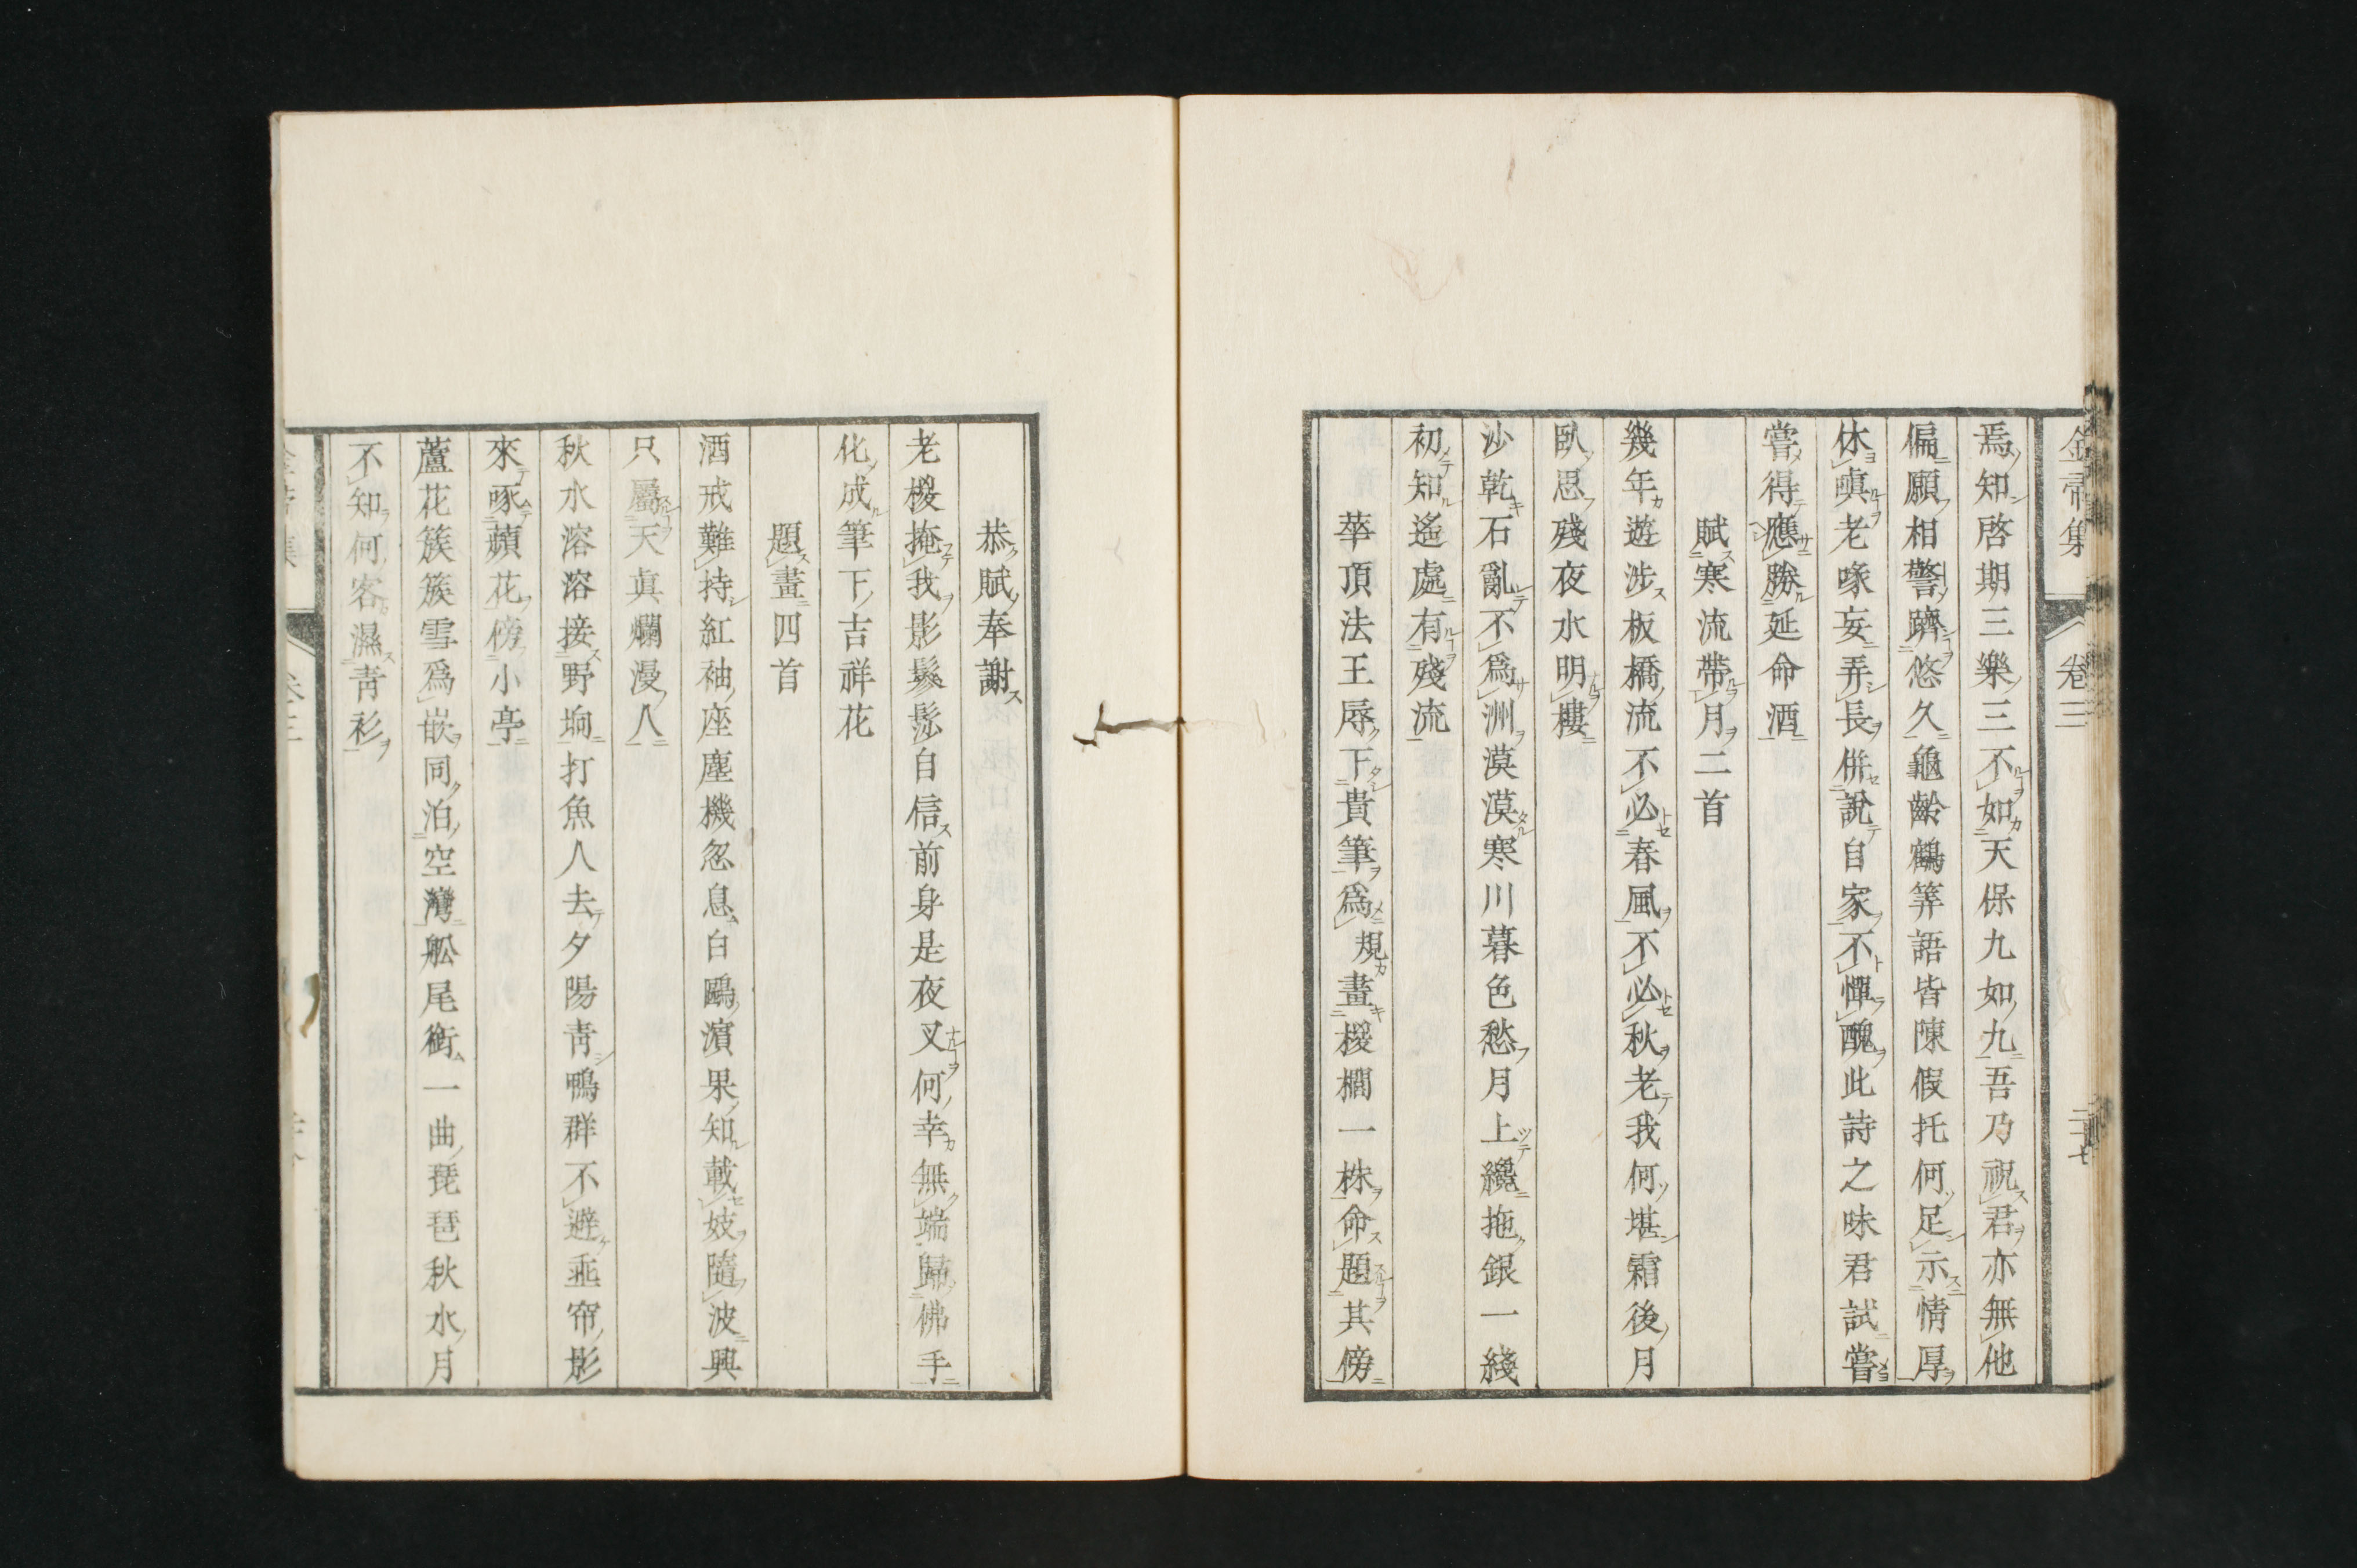 金帚集 卷三
焉知啓期三樂三不如天保九如九吾乃祝君亦無他
偏願相警躋悠久龜齡鶴筭語皆陳假托何足示情厚
休嗔老喙妄弄長併說自家不憚醜此詩之味君試嘗
嘗得應勝延命酒
賦寒流帶月二首
幾年遊涉板橋流不必春風不必秋老我何堪霜後月
臥思殘夜水明樓
沙乾石亂不爲洲漠漠寒川暮色愁月上纔拖銀一綫
初知遙處有殘流
華頂法王辱下貴筆爲規畫椶櫚一株命題其傍
恭賦奉謝
老椶掩我影鬖髿自信前身是夜叉何幸無端歸佛手
化成筆下吉祥花
題畫四首
酒戒難持紅袖座塵機忽息白鷗濱果知載妓隨波興
只屬天眞爛漫人
秋水溶溶接野坰打魚人去夕陽靑鴨群不避垂帘影
來啄蘋花傍小亭
蘆花簇簇雪爲嵌同泊空灣舩尾銜一曲琵琶秋水月
不知何客濕靑衫